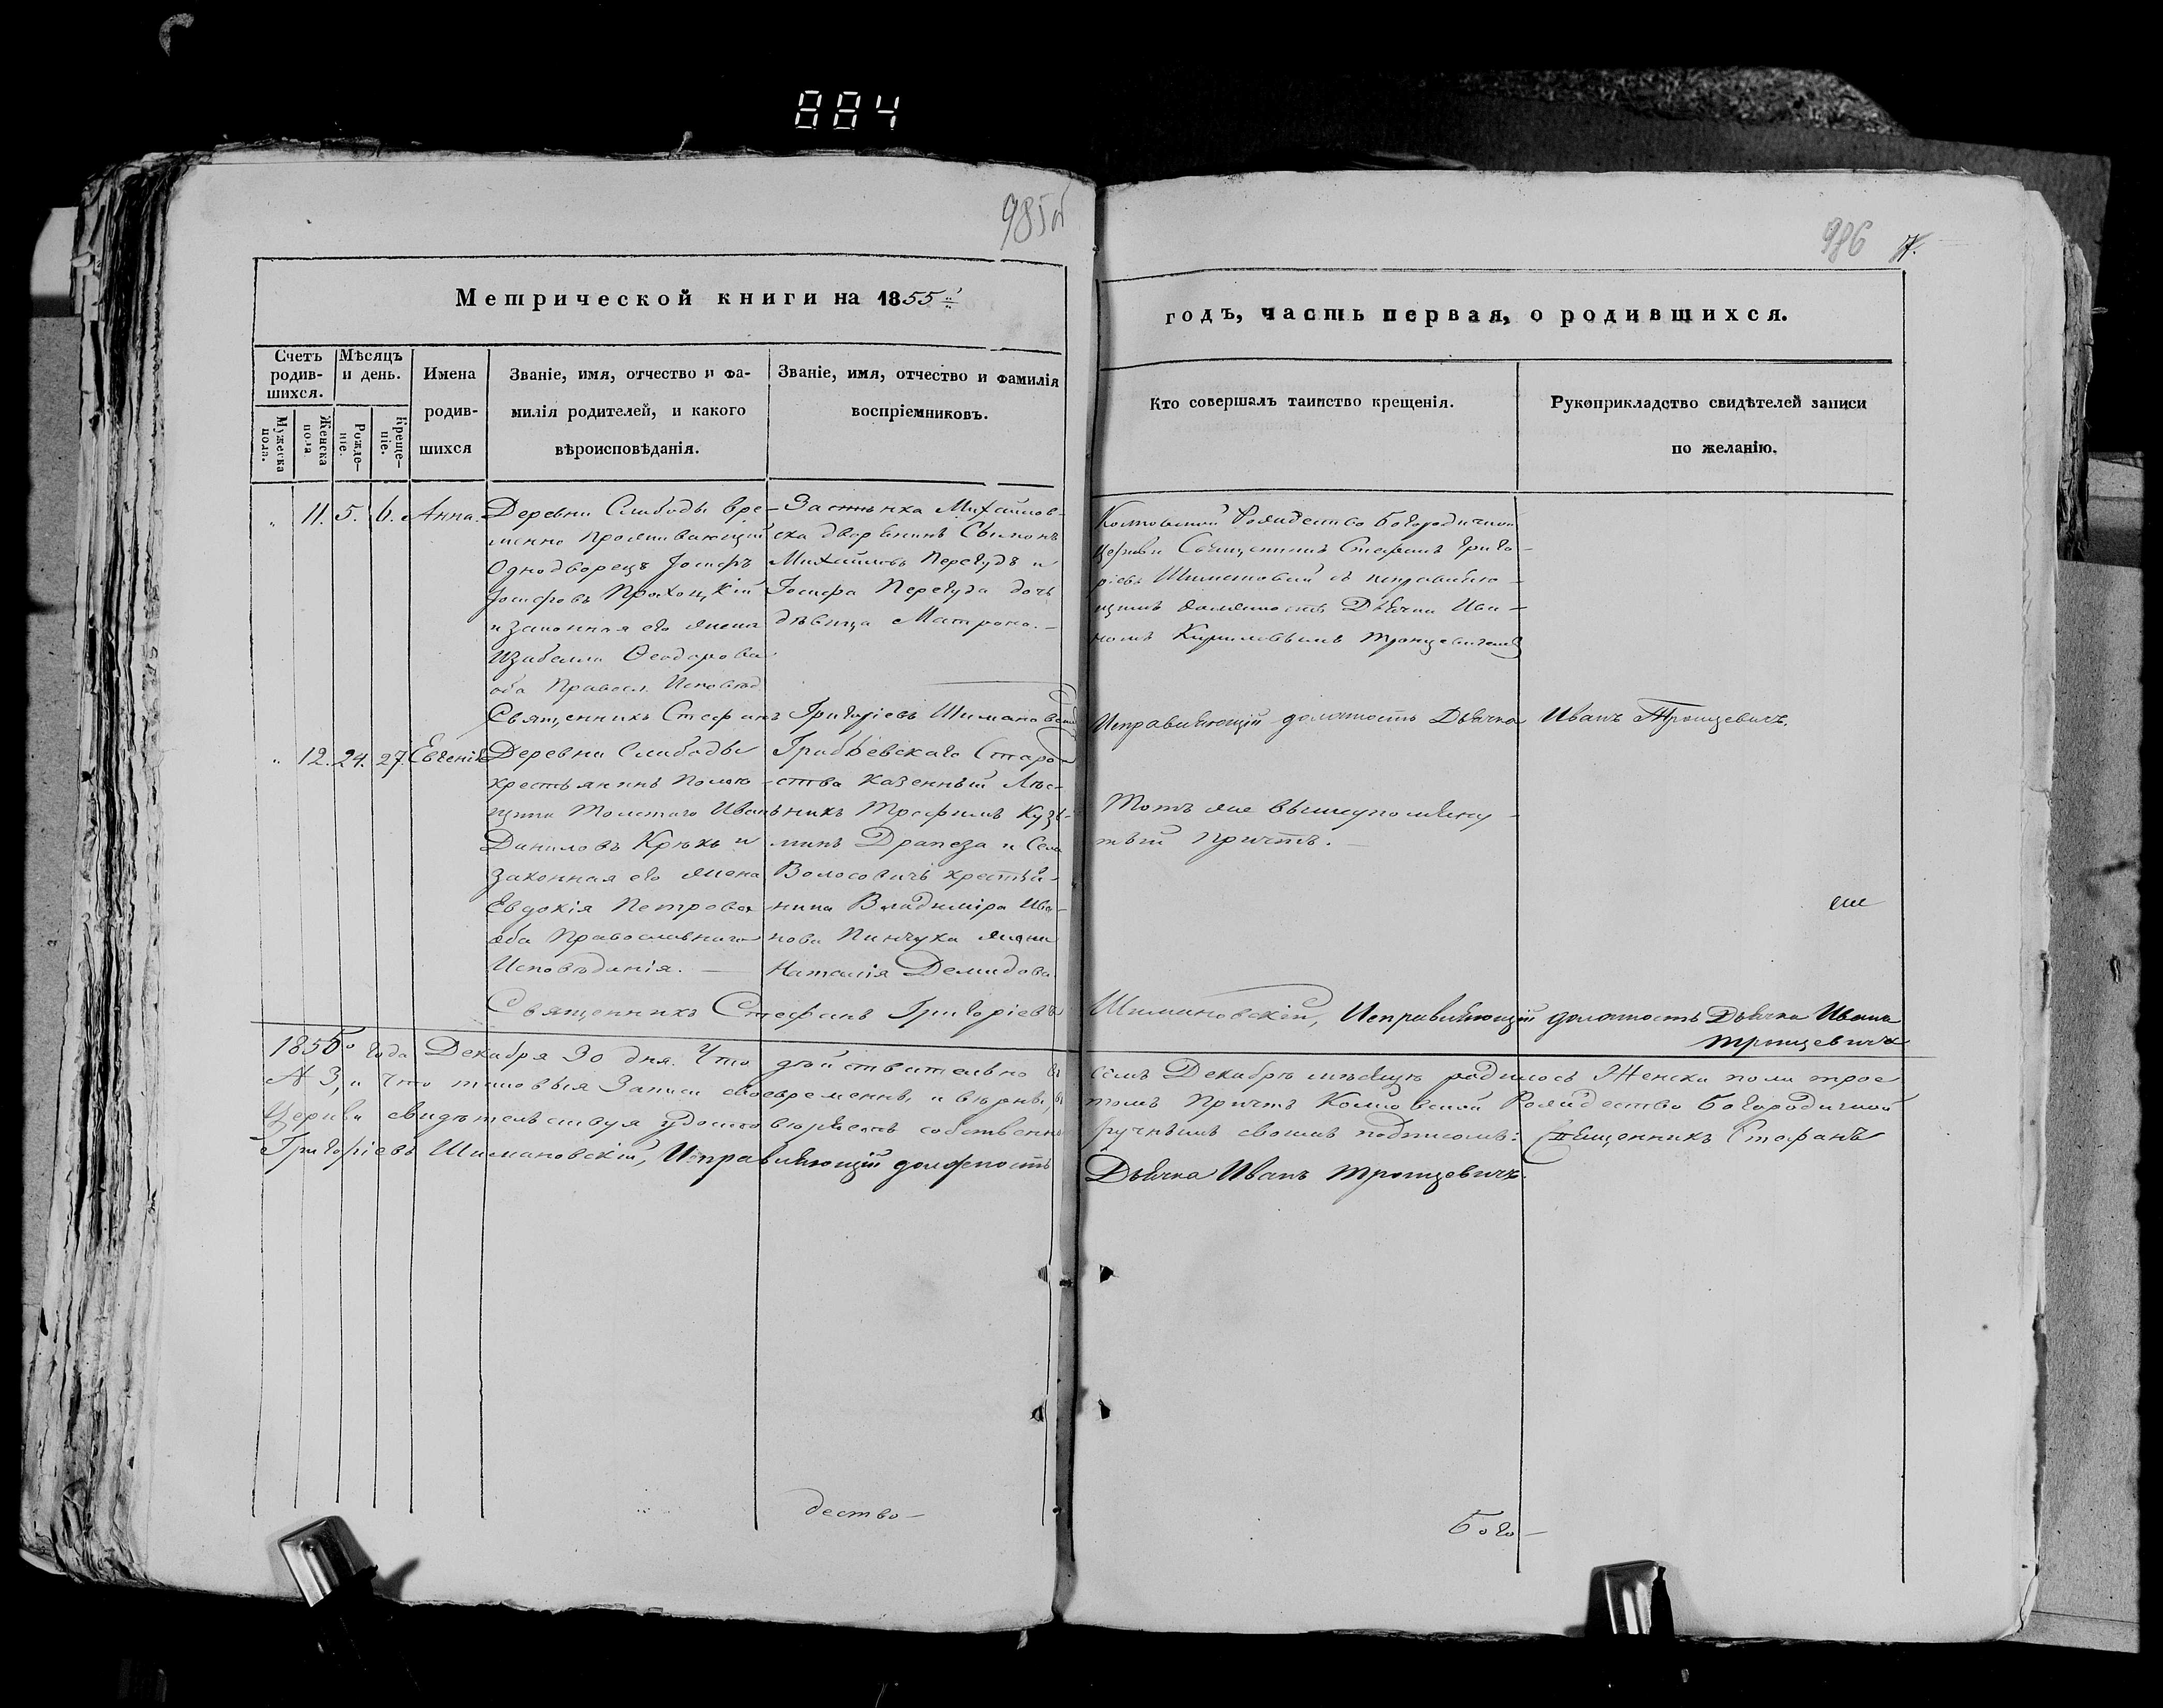 884
985об
986
Метрической книги на 1855й
годъ, часть первая, о родившихся.
Счетъ родив-шихся.
Мѣсяцъ и день.
Мужеска пола.
Женска пола
Рожде-ніе.
Креще-ніе.
Имена родив-шихся
Званіе, имя, отчество и фа-
милія родителей, и какого
вѣроисповѣданія.
Званіе, имя, отчество и фамилія
воспріемниковъ.
Кто совершалъ таинство крещенія.
Рукоприкладство свидѣтелей записи
по желанію.
11. 5. 6. Анна.
Деревни Слободы вре-
менно проживающій
Однодворецъ Іосифъ
Іосифовъ
и законная его жена
Изабелла Ѳеодорова
оба Правосл. Исповѣд.
Застѣнка Михайлов-
ска дворянинъ Сѵмонъ
Михайловъ Перегудъ и
Іосифа Перегуда дочь
дѣвица Матрона.
Рождество Богородичной
Церкви Священникъ Стефанъ Григо-
ріевъ Шимановскій съ исправляю-
щимъ должность Дьячка Ива-
номъ Кириловымъ Тронцевичемъ
Священникъ Стефанъ Григоріевъ Шимановскій
Исправляющій должность Дьячка Иванъ Тронцевичъ.
12. 24. 27. Евгенія
Деревни Слободы
крестьянинъ помѣ-
щика Толстаго Иванъ
Даниловъ Крюкъ и
законная его жена
Евдокія Петрова
оба Православнаго
Исповѣданія.
Старо-
ства казенный Лѣс-
никъ Трофимъ Кузь-
минъ Драпеза и Села
Волосовичъ крестья-
нина Владиміра Ива-
нова Пинчука жена
Наталія Демидова
Тотъ же вышеупомяну-
тый причтъ.
Священникъ Стефанъ Григоріевъ Шимановскій, Исправляющій должность Дьячка Иванъ
Тронцевичъ
1855го года Декабря 30 дня. Что дѣйствительно въ семъ Декабрѣ мѣсяцѣ родилось Женска пола трое
№ 3, и что таковыя Записи своевременны, и вѣрны, въ томъ Причтъ Рождество Богородичной
Церкви свидѣтельствуя удостовѣряетъ собственно ручнымъ своимъ подписомъ: Священникъ Стефанъ
Григоріевъ Шимановскій, Исправляющій должность Дьячка Иванъ Тронцевичъ.
дество-
Бого-